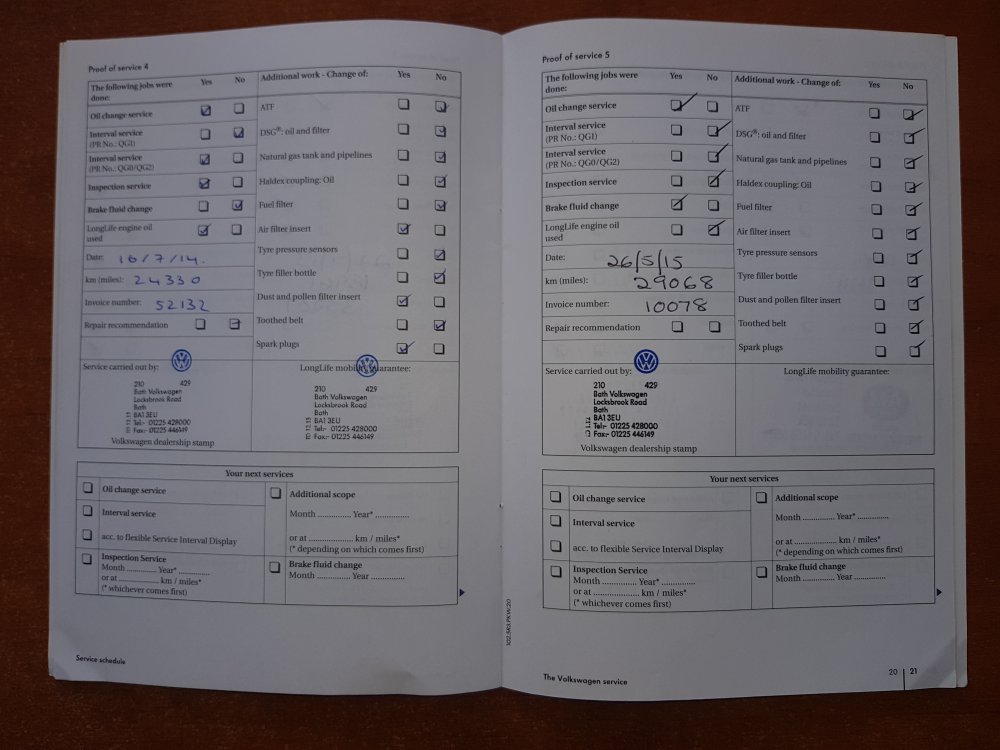 Proof of service 4
The following jobs were done: Yes No
Oil change service
Interval service
(PR No.: QG1)
Interval service
(PR No.: QG0/QG2)
Inspection service
Brake fluid change
LongLife engine oil
used
Date: 16/7/14.
km (miles): 24330
Invoice number: 52132
Repair recommendation
Additional work - Change of: Yes No
ATF
DSG®: oil and filter
Natural gas tank and pipelines
Haldex coupling: Oil
Fuel filter
Air filter insert
Tyre pressure sensors
Tyre filler bottle
Dust and pollen filter insert
Toothed belt
Spark plugs
Service carried out by:
210 429
Bath Volkswagen
Locksbrook Road
Bath
BA1 3EU
Tel:- 01225 428000
Fax:- 01225 446149
Volkswagen dealership stamp
LongLife mobility guarantee:
210 429
Bath Volkswagen
Locksbrook Road
Bath
BA1 3EU
Tel:- 01225 428000
Fax:- 01225 446149
Your next services
Oil change service
Interval service
acc. to flexible Service Interval Display
Inspection Service
Month ............ Year* ............
or at ................ km / miles*
(* whichever comes first)
Additional scope
Month ............ Year* ............
or at ................ km / miles*
(* depending on which comes first)
Brake fluid change
Month ............ Year ............
Service schedule
Proof of service 5
The following jobs were
done: Yes No
Oil change service
Interval service
(PR No.: QG1)
Interval service
(PR No.: QG0/QG2)
Inspection service
Brake fluid change
LongLife engine oil
used
Date: 26/5/15
km (miles): 29068
Invoice number: 10078
Repair recommendation
Additional work - Change of: Yes No
ATF
DSG®: oil and filter
Natural gas tank and pipelines
Haldex coupling: Oil
Fuel filter
Air filter insert
Tyre pressure sensors
Tyre filler bottle
Dust and pollen filter insert
Toothed belt
Spark plugs
Service carried out by:
210 429
Bath Volkswagen
Locksbrook Road
Bath
BA1 3EU
Tel:- 01225 428000
Fax:- 01225 446149
Volkswagen dealership stamp
LongLife mobility guarantee:
Your next services
Oil change service
Interval service
acc. to flexible Service Interval Display
Inspection Service
Month ............ Year* ............
or at ................ km / miles*
(* whichever comes first)
Additional scope
Month ............ Year* ............
or at ................ km / miles*
(* depending on which comes first)
Brake fluid change
Month ............ Year ............
The Volkswagen service
20 | 21